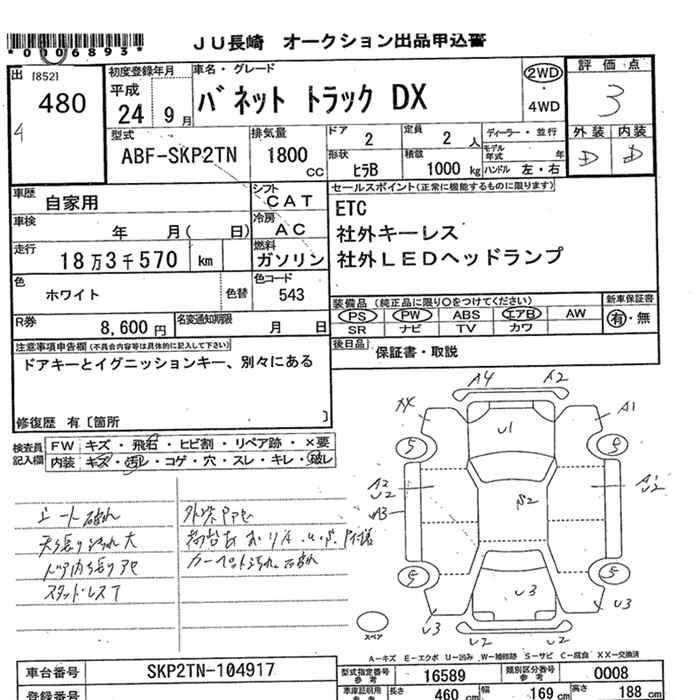 *0006893*
JU長崎 オークション出品申込書
出 [852]
480
4
初度登録年月
平成
24 9月
車名・グレード
バネット トラック DX
2WD
4WD
評価点
3
外装 内装
D D
型式
ABF-SKP2TN
排気量
1800 CC
ドア
2
定員
2人
ディーラー・並行
形状
ヒラB
積載
1000 kg
モデル年式 年
ハンドル 左・右
車歴
自家用
シフト
CAT
車検
年 月( 日)
冷房
AC
走行
18万3千570 km
燃料
ガソリン
色
ホワイト
色替
色コード
543
R券
8,600円
名変通知期限
月 日
セールスポイント(正常に機能するものに限ります)
ETC
社外キーレス
社外LEDヘッドランプ
装備品 (純正品に限り○をつけてください)
新車保証書
PS PW ABS エアB AW
有・無
SR ナビ TV カワ
後日品
保証書・取説
注意事項申告欄(不具合内容等は具体的に記入して下さい)
ドアキーとイグニッションキー、別々にある
修復歴 有〔箇所 〕
検査員記入欄
FW キズ・飛石・ヒビ割・リペア跡・×要
内装 キズ・汚レ・コゲ・穴・スレ・キレ・破レ
シート破れ
天張り汚れ大
ドア内張りアセ
スタッドレス7
カーペット汚れ.破れ
A4 A2
A4 A1
U1
5 5
A2
U2
A3
S2
A2
U2
5 5
U3 U3 U3
U2 U2
スペア
A-キズ E-エクボ U-凹み W-補修跡 S-サビ C-腐食 XX-交換済
車台番号
SKP2TN-104917
型式指定番号
参考
16589
類別区分番号
参考
0008
登録番号
車庫証明用
参考
長さ 460 cm
幅 169 cm
高さ 188 cm